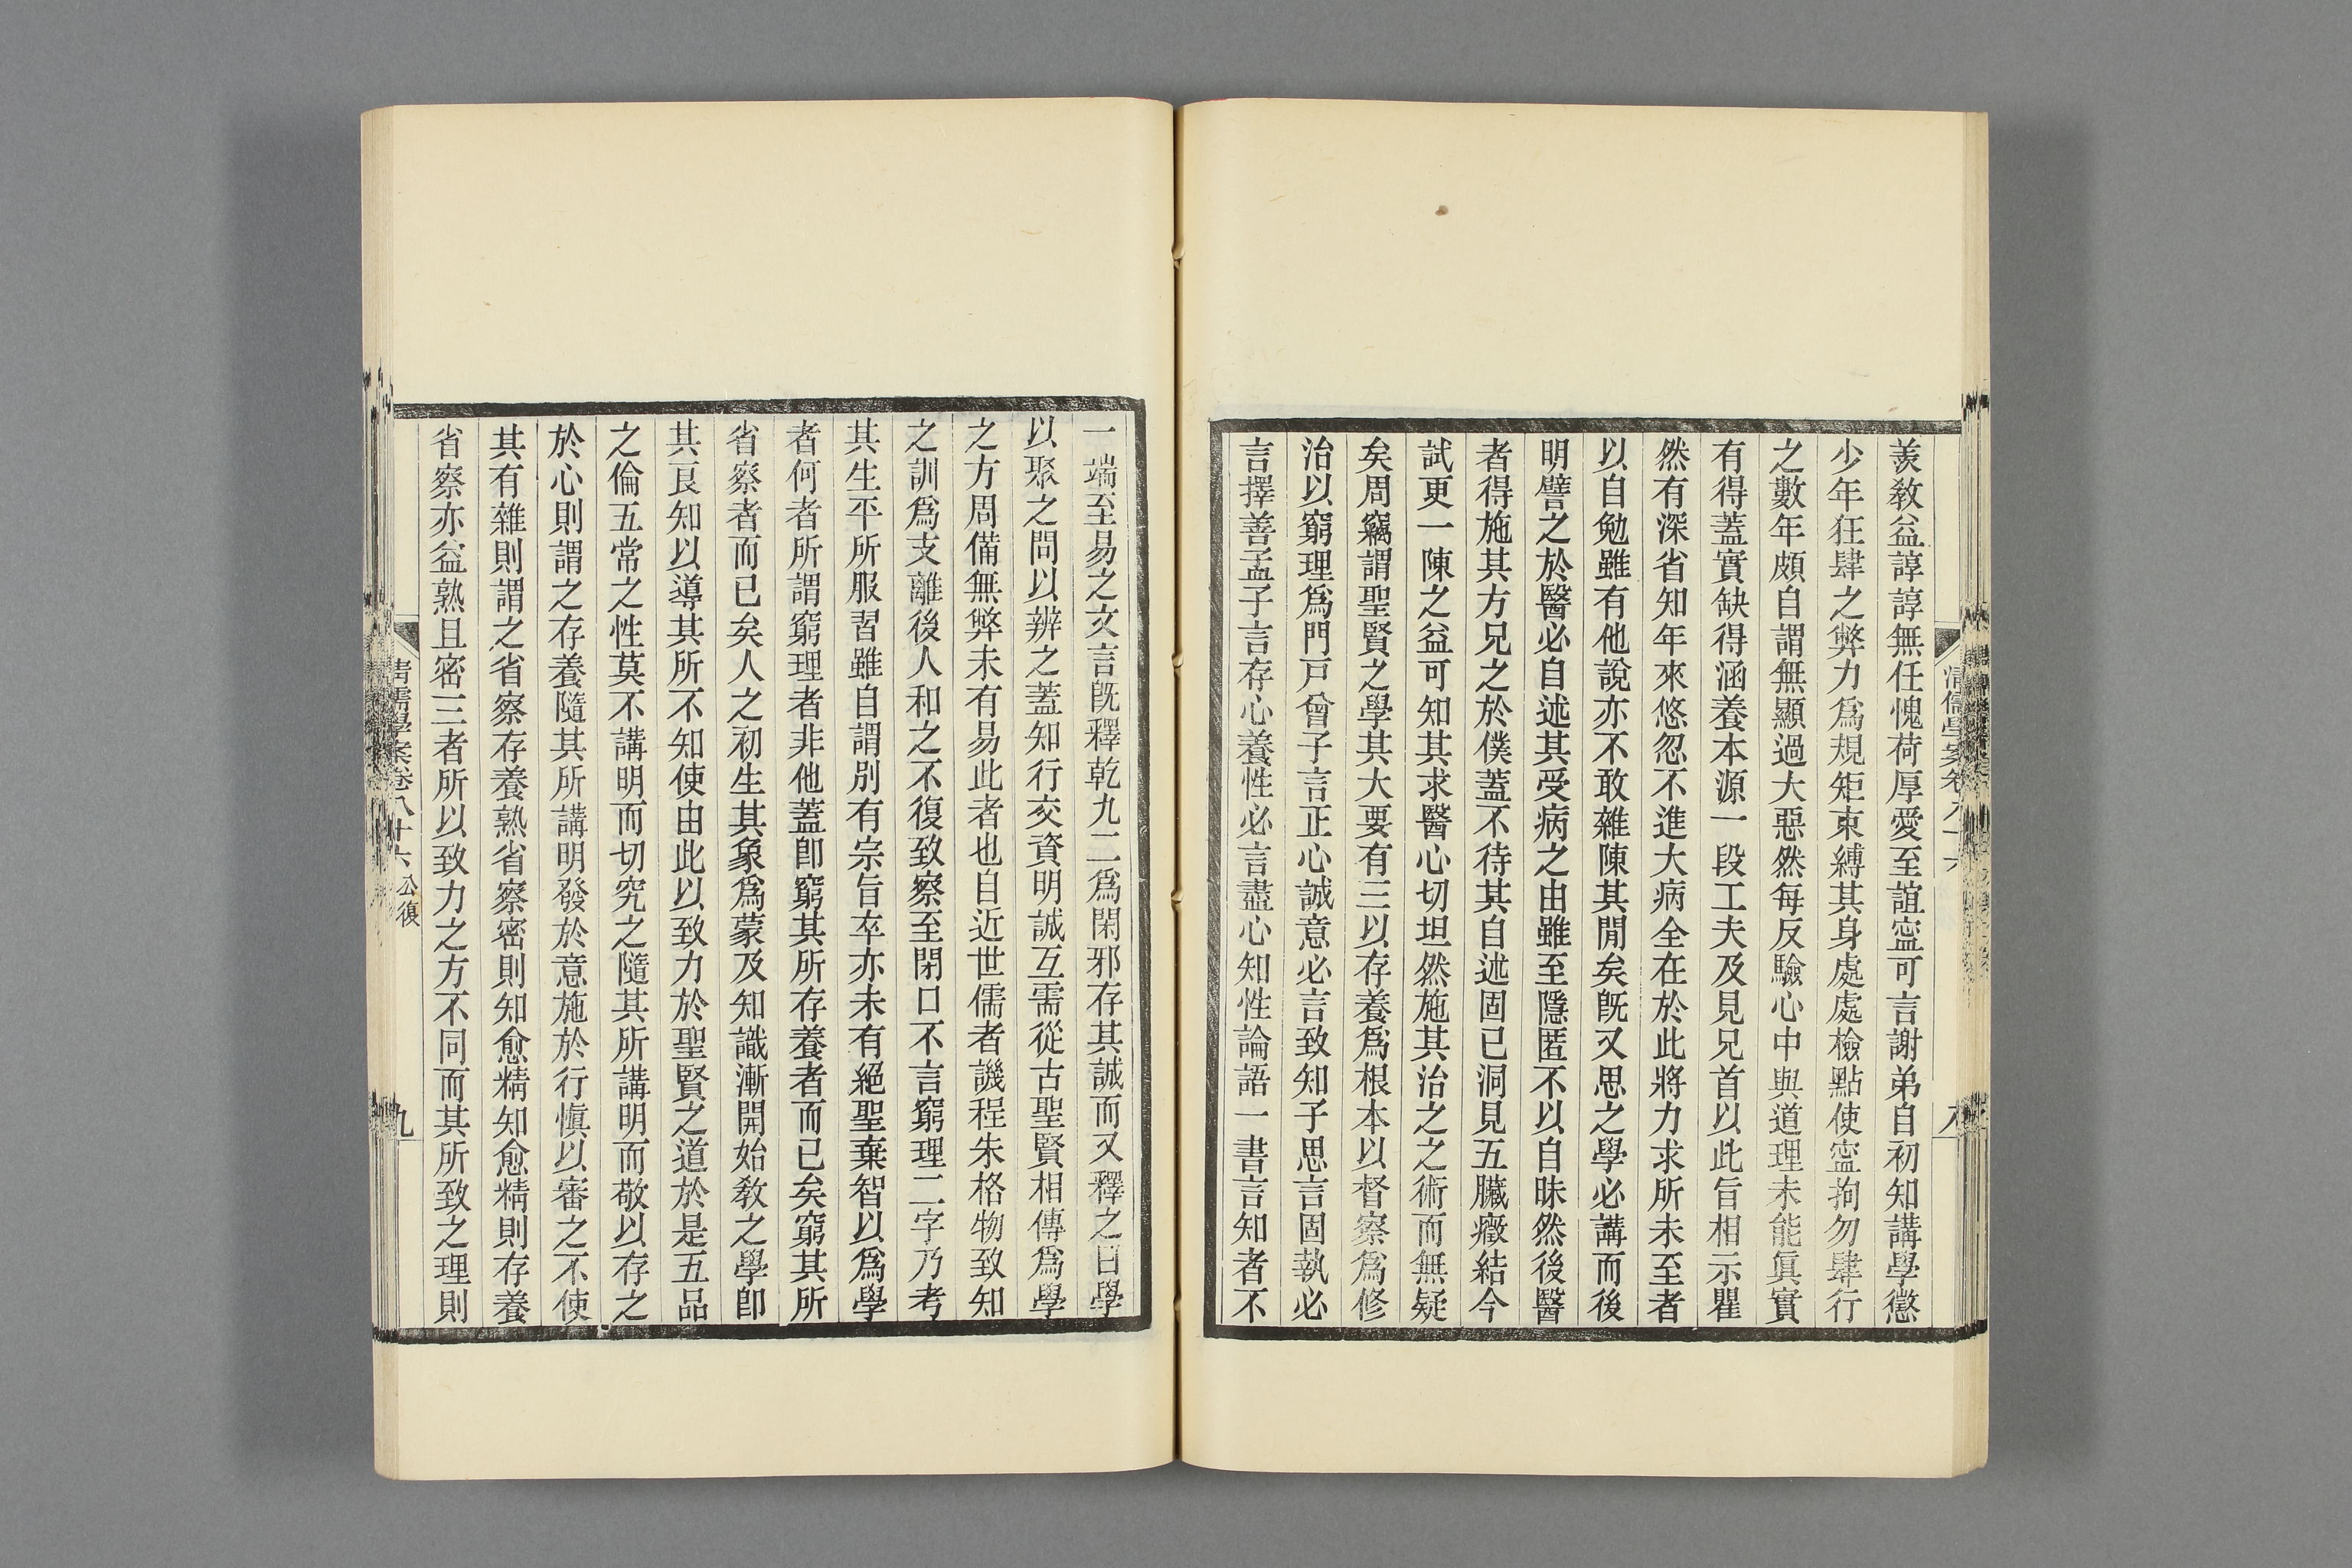 羨敎益諄諄無任愧荷厚愛至誼寍可言謝弟自初知講學懲
少年狂肆之弊力爲規矩束縛其身處處檢點使寍拘勿肆行
之數年頗自謂無顯過大惡然每反驗心中與道理未能眞實
有得蓋實缺得涵養本源一段工夫及見兄首以此旨相示瞿
然有深省知年來悠忽不進大病全在於此將力求所未至者
以自勉雖有他說亦不敢雜陳其閒矣旣又思之學必講而後
明譬之於醫必自述其受病之由雖至隱匿不以自昧然後醫
者得施其方兄之於僕蓋不待其自述固已洞見五臟癥結今
試更一陳之益可知其求醫心切坦然施其治之之術而無疑
矣周竊謂聖賢之學其大要有三以存養爲根本以督察爲修
治以窮理爲門戸曾子言正心誠意必言致知子思言固執必
言擇善孟子言存心養性必言盡心知性論語一書言知者不
清儒學案卷八十六
八
一端至易之文言旣釋乾九二爲閑邪存其誠而又釋之曰學
以聚之問以辨之蓋知行交資明誠互需從古聖賢相傳爲學
之方周備無弊未有易此者也自近世儒者譏程朱格物致知
之訓爲支離後人和之不復致察至閉口不言窮理二字乃考
其生平所服習雖自謂別有宗旨卒亦未有絕聖棄智以爲學
者何者所謂窮理者非他蓋卽窮其所存養者而已矣窮其所
省察者而已矣人之初生其象爲蒙及知識漸開始敎之學卽
其良知以導其所不知使由此以致力於聖賢之道於是五品
之倫五常之性莫不講明而切究之隨其所講明而敬以存之
於心則謂之存養隨其所講明發於意施於行愼以審之不使
其有雜則謂之省察存養熟省察密則知愈精知愈精則存養
省察亦益熟且密三者所以致力之方不同而其所致之理則
清儒學案卷八十六 公復
九